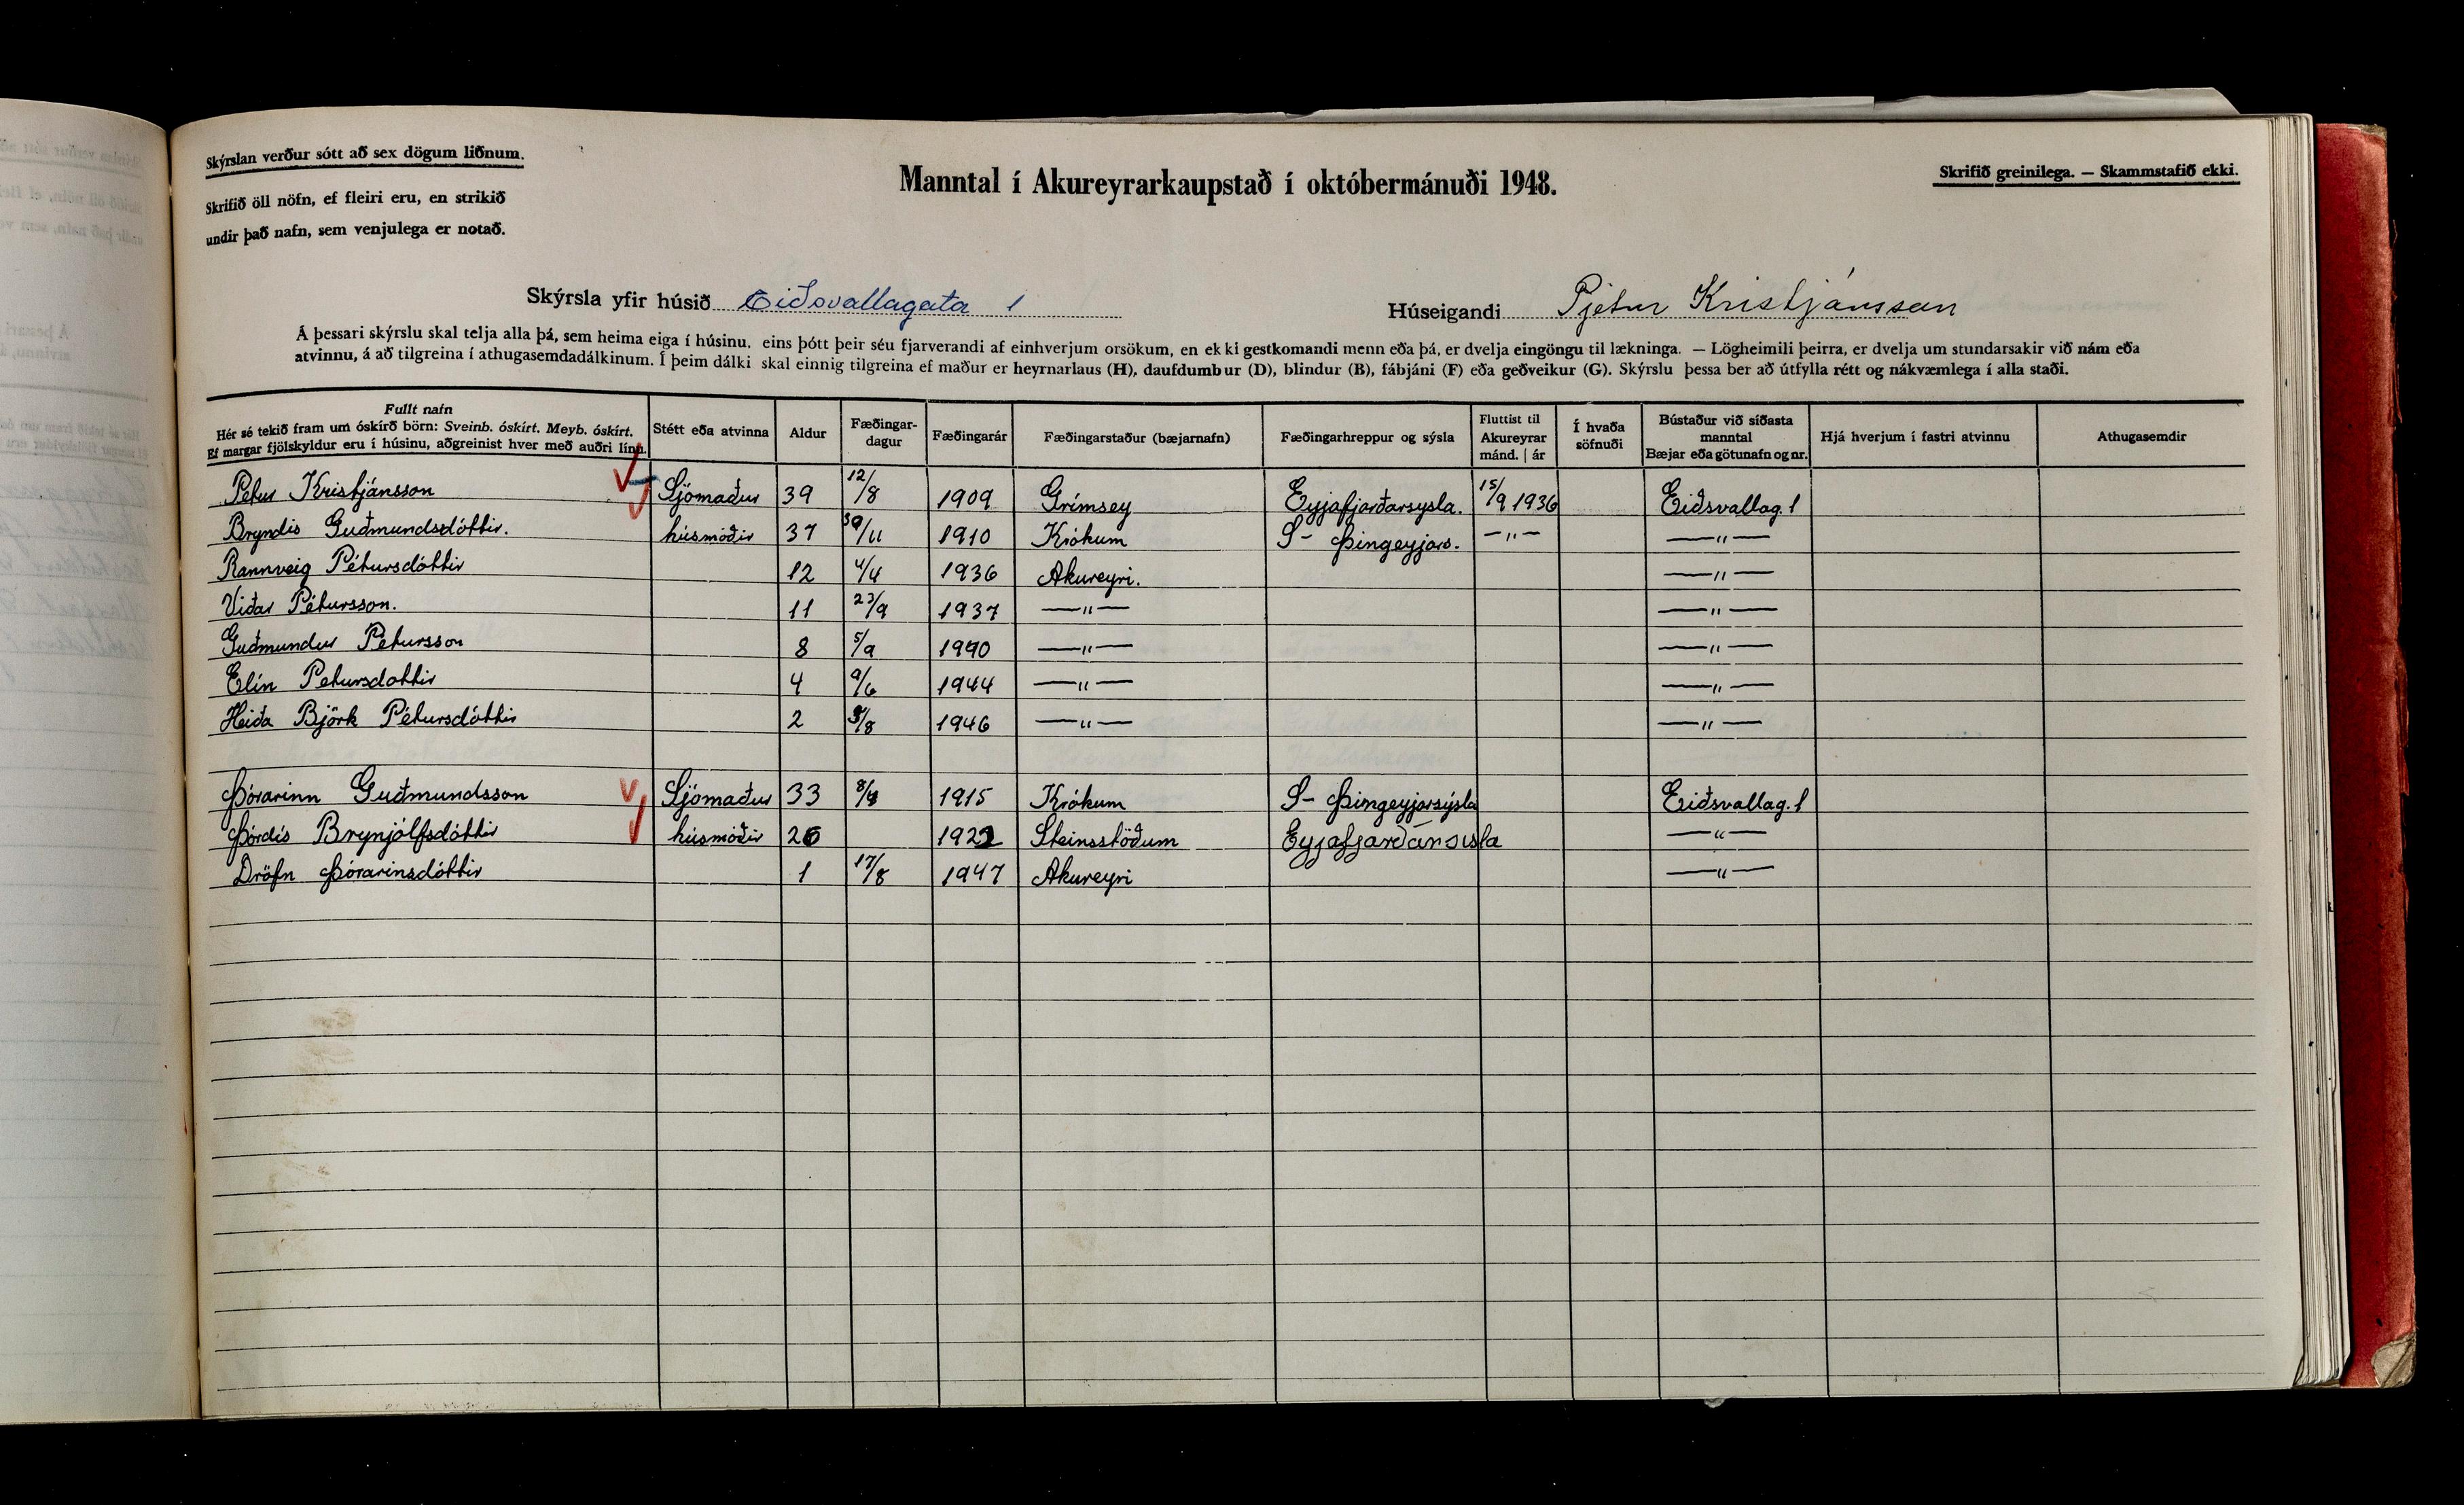 Skýrslan verður sótt að sex dögum liðnum.
Skrifið öll nöfn, ef fleiri eru, en strikið
undir það nafn, sem venjulega er notað.
Manntal í Akureyrarkaupstað í októbermánuði 1948.
Skrifið greinilega. — Skammstafið ekki.
Skýrsla yfir húsið Eiðsvallagata 1
Húseigandi Pjetur Kristjánsson
Á þessari skýrslu skal telja alla þá, sem heima eiga í húsinu, eins þótt þeir séu fjarverandi af einhverjum orsökum, en ekki gestkomandi menn eða þá, er dvelja eingöngu til lækninga. — Lögheimili þeirra, er dvelja um stundarsakir við nám eða
atvinnu, á að tilgreina í athugasemdadálkinum. Í þeim dálki skal einnig tilgreina ef maður er heyrnarlaus (H), daufdumbur (D), blindur (B), fábjáni (F) eða geðveikur (G). Skýrslu þessa ber að útfylla rétt og nákvæmlega í alla staði.
Fullt nafn
Hér sé tekið fram um óskírð börn: Sveinb. óskírt. Meyb. óskírt.
Ef margar fjölskyldur eru í húsinu, aðgreinist hver með auðri línu.
Stétt eða atvinna
Aldur
Fæðingar-
dagur
Fæðingarár
Fæðingarstaður (bæjarnafn)
Fæðingarhreppur og sýsla
Fluttist til
Akureyrar
mánd. | ár
Í hvaða
söfnuði
Bústaður við síðasta
manntal
Bæjar eða götunafn og nr.
Hjá hverjum í fastri atvinnu
Athugasemdir
Petur Kristjánsson Sjómaður 39 12/8 1909 Grímsey Eyjafjarðarsysla. 15/9 1936 Eiðsvallag. 1
Bryndis Guðmundsdóttir. húsmóðir 37 30/11 1910 Krókum S- Þingeyjars. —"— —"—
Rannveig Pétursdóttir 12 4/4 1936 Akureyri. —"—
Viðar Pétursson. 11 23/9 1937 —"— —"—
Guðmundur Petursson 8 5/9 1940 —"— —"—
Elín Petursdottir 4 9/6 1944 —"— —"—
Heiða Björk Pétursdóttir 2 5/8 1946 —"— —"—
Þórarinn Guðmundsson Sjómaður 33 8/4 1915 Krókum S- Þingeyjarsýsla Eiðsvallag. 1
Þórdís Brynjólfsdóttir húsmóðir 26 1922 Steinsstöðum Eyjafjarðársisla —"—
Dröfn Þórarinsdóttir 1 17/8 1947 Akureyri —"—